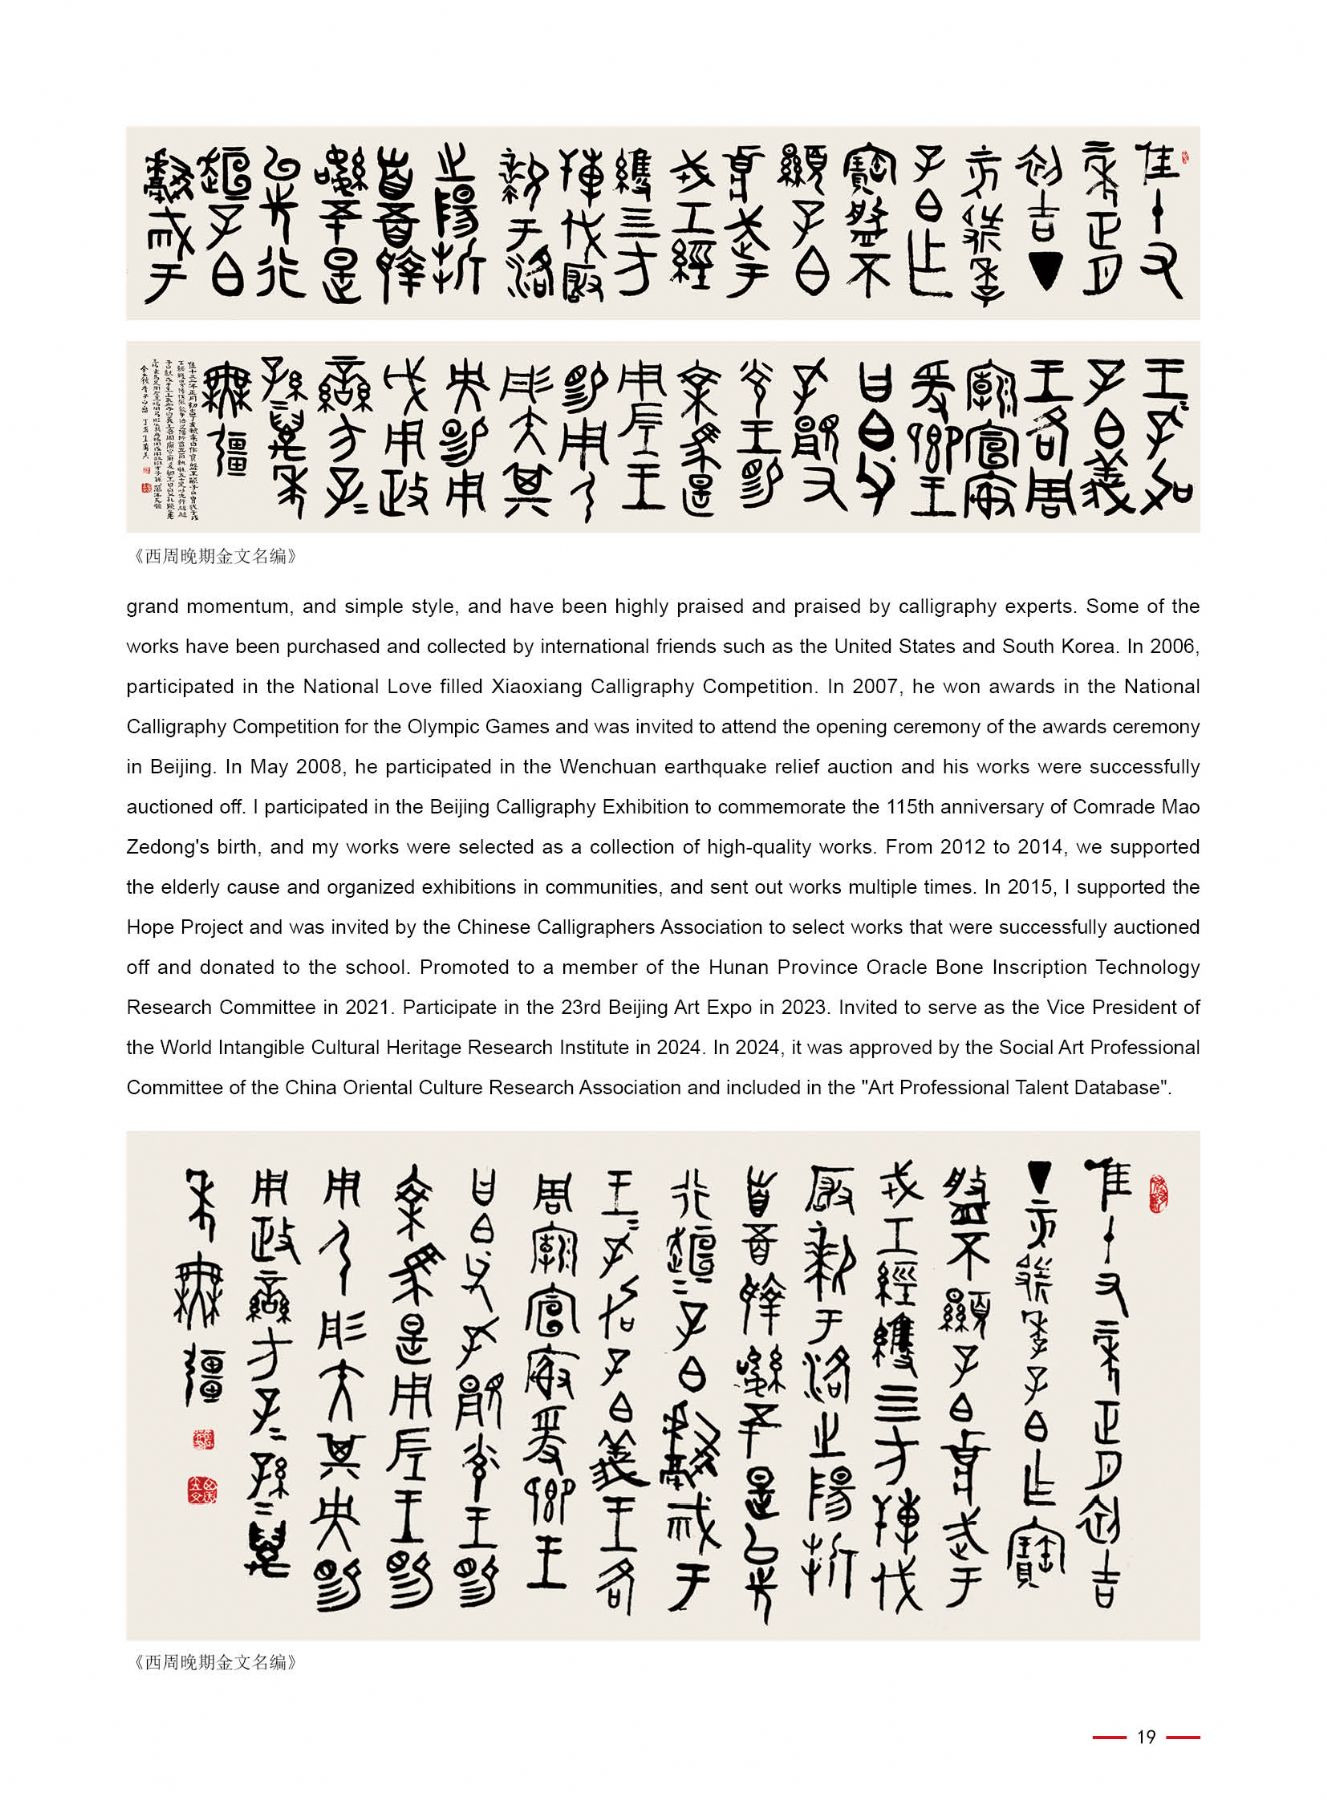 隹十又
二年正月
初吉丁
亥虢季
子白乍
寶盤不
顯子白
壯武于
戎工經
維四方
搏伐厰
狁于洛
之陽折
首五百執
訊五十是
以先行
趄趄子白
獻馘于
王王孔加
子白義
王各周
廟宣榭
爰鄉王
曰白父
孔覭又
光王賜
乘馬是
用左王
賜用弓
彤矢其
央賜用
戉用政
蠻方子子
孫孫萬年
無疆
《西周晚期金文名编》
grand momentum, and simple style, and have been highly praised and praised by calligraphy experts. Some of the
works have been purchased and collected by international friends such as the United States and South Korea. In 2006,
participated in the National Love filled Xiaoxiang Calligraphy Competition. In 2007, he won awards in the National
Calligraphy Competition for the Olympic Games and was invited to attend the opening ceremony of the awards ceremony
in Beijing. In May 2008, he participated in the Wenchuan earthquake relief auction and his works were successfully
auctioned off. I participated in the Beijing Calligraphy Exhibition to commemorate the 115th anniversary of Comrade Mao
Zedong's birth, and my works were selected as a collection of high-quality works. From 2012 to 2014, we supported
the elderly cause and organized exhibitions in communities, and sent out works multiple times. In 2015, I supported the
Hope Project and was invited by the Chinese Calligraphers Association to select works that were successfully auctioned
off and donated to the school. Promoted to a member of the Hunan Province Oracle Bone Inscription Technology
Research Committee in 2021. Participate in the 23rd Beijing Art Expo in 2023. Invited to serve as the Vice President of
the World Intangible Cultural Heritage Research Institute in 2024. In 2024, it was approved by the Social Art Professional
Committee of the China Oriental Culture Research Association and included in the "Art Professional Talent Database".
隹十又二年正月初吉
丁亥虢季子白乍寶
盤不顯子白壯武于
戎工經維四方搏伐
厰狁于洛之陽折
首五百執訊五十是以先
行趄趄子白獻馘于
王王孔加子白義王各
周廟宣榭爰鄉王
曰白父孔覭又光王賜
乘馬是用左王賜
用弓彤矢其央賜
用戉用政蠻方子子孫孫萬
年無疆
《西周晚期金文名编》
19